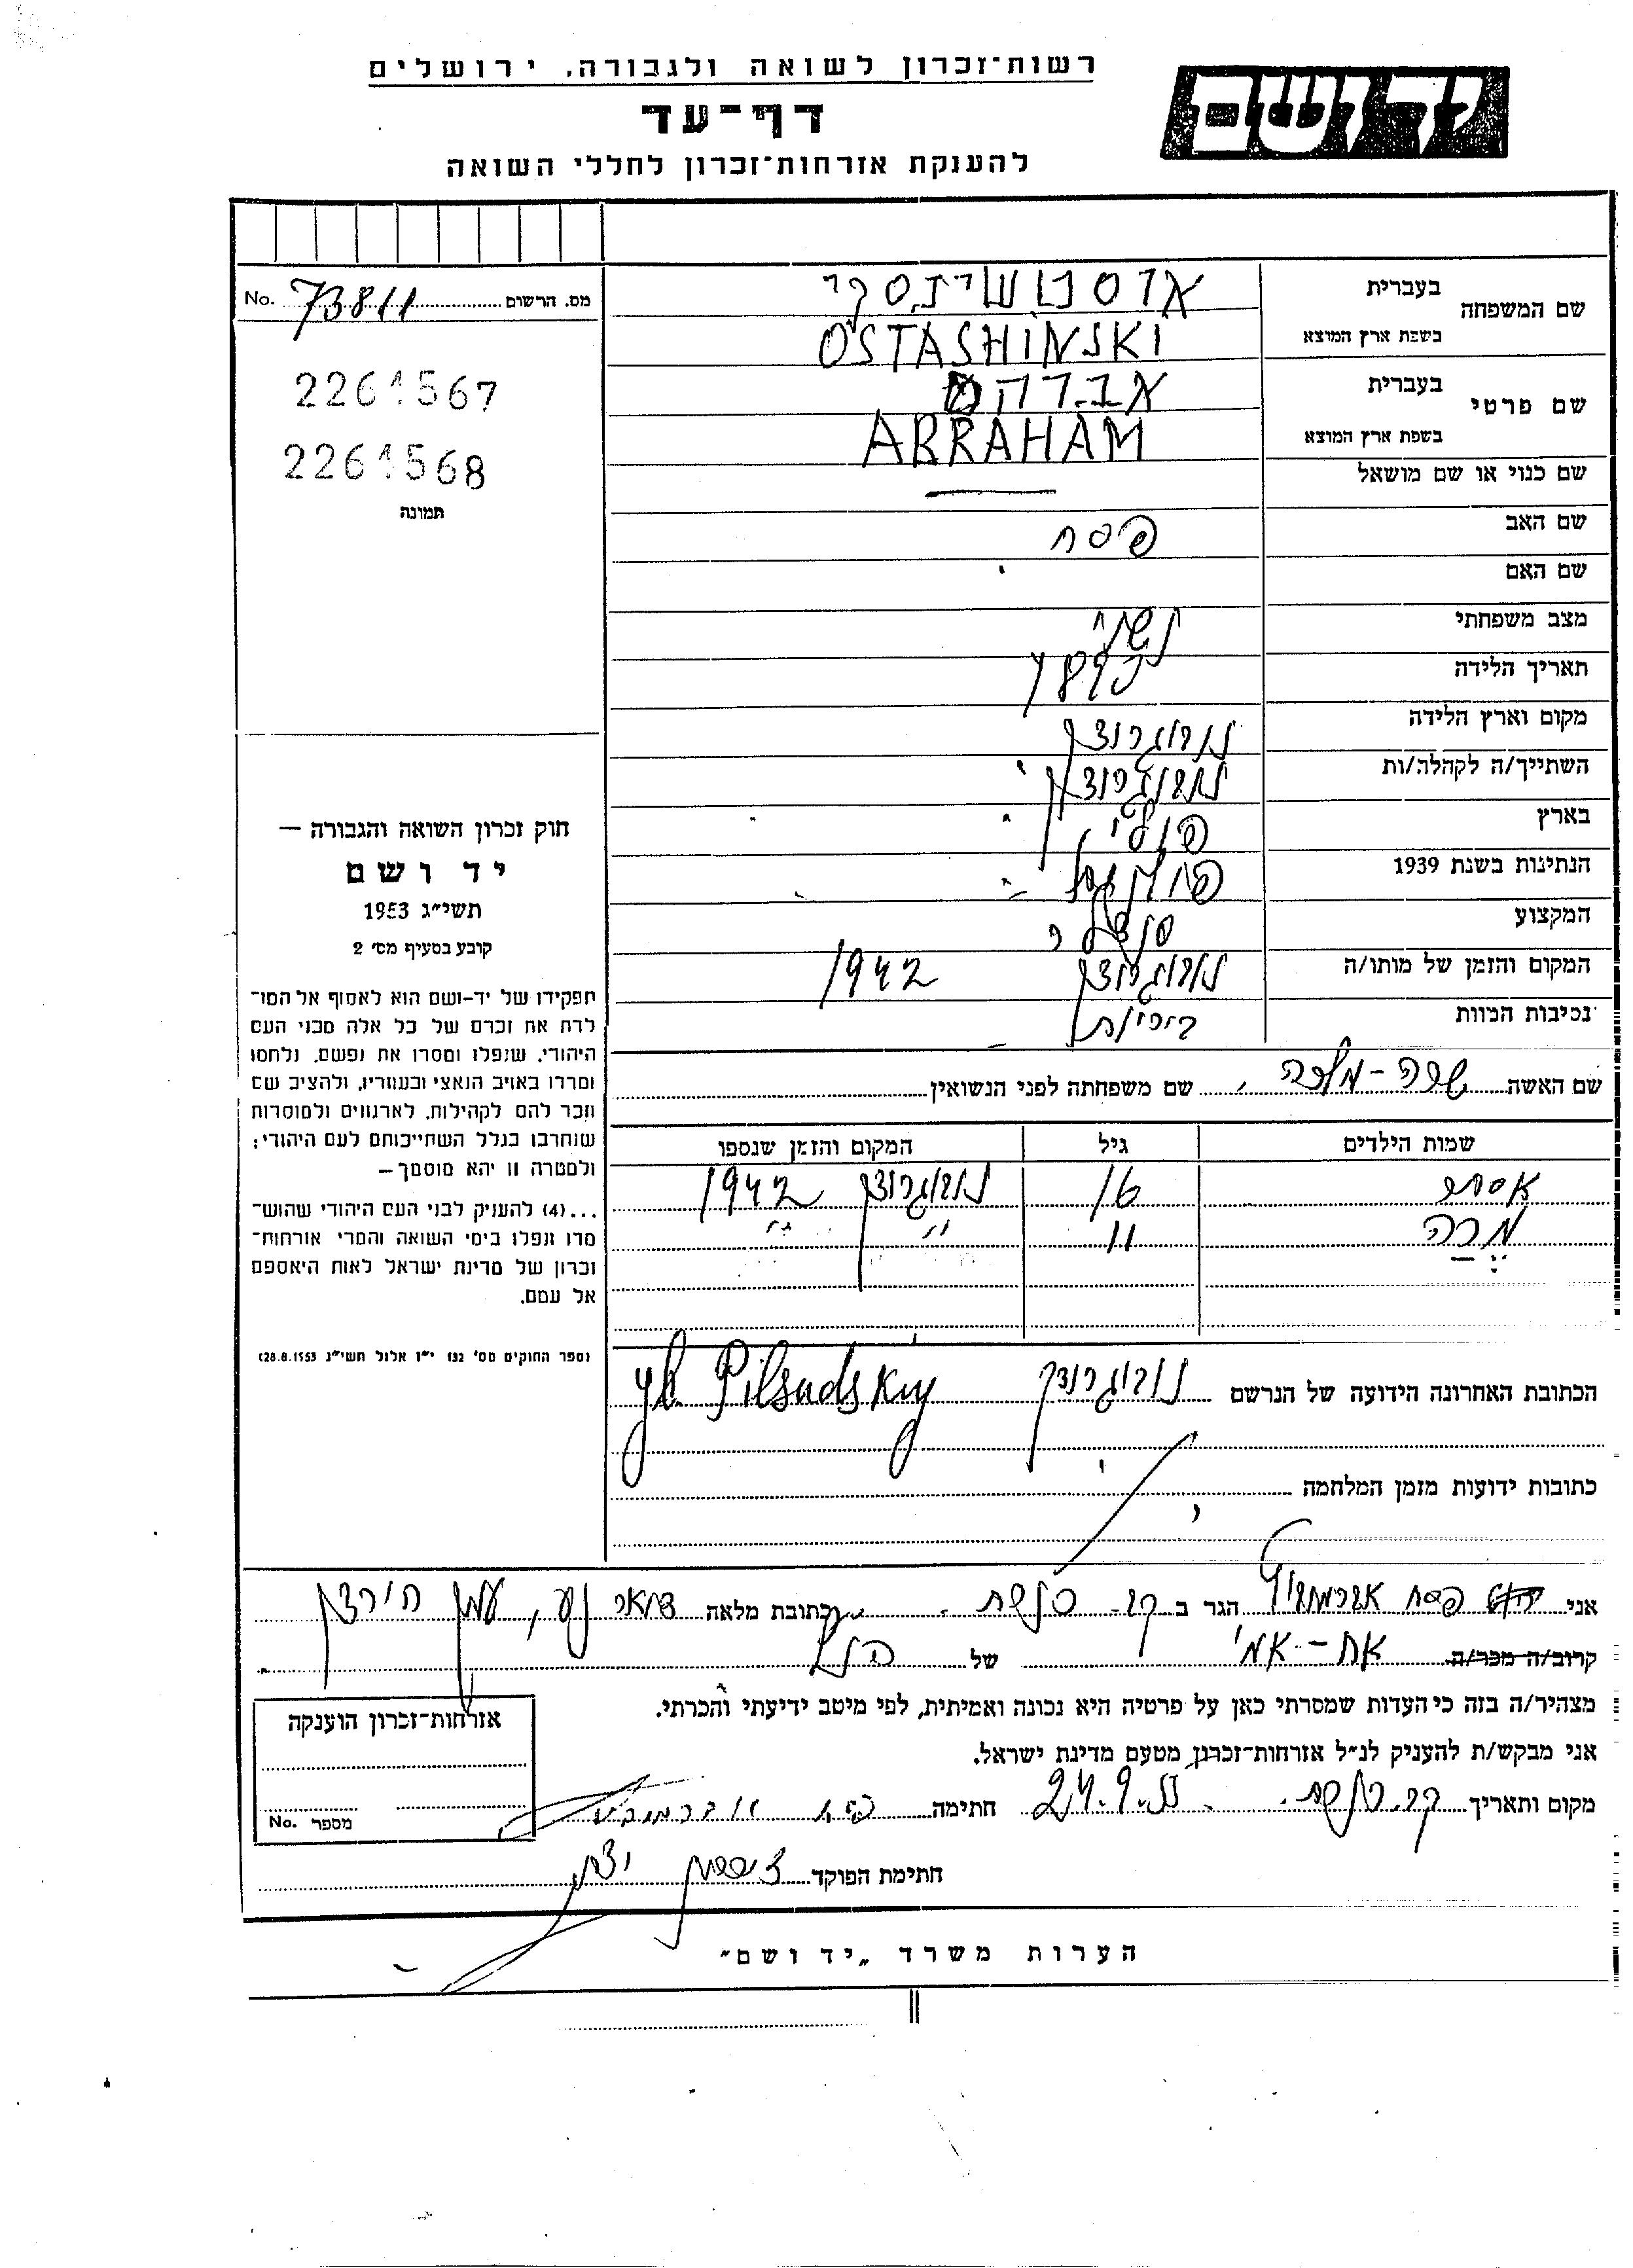 יד ושם
רשות־זכרון לשואה ולגבורה, ירושלים
דף־עד
להענקת אזרחות־זכרון לחללי השואה
מס. הרשום 73811 No.
2261567
2261568
תמונה
שם המשפחה
בעברית אוסטשינסקי
בשפת ארץ המוצא OSTASHINSKI
שם פרטי
בעברית אברהם
בשפת ארץ המוצא ABRAHAM
שם כנוי או שם מושאל —
שם האב פסח
שם האם
מצב משפחתי נשוי
תאריך הלידה
מקום וארץ הלידה נובוגרודק
השתייך/ה לקהלה/ות נובוגרודק
בארץ פולין
הנתינות בשנת 1939 פולנית
המקצוע סנדלר
המקום והזמן של מותו/ה נובוגרודק 1942
נסיבות המוות
שם האשה שרה-מלכה שם משפחתה לפני הנשואין
שמות הילדים גיל המקום והזמן שנספו
אסתר 16 נובוגרודק 1942
מרה 11 " "
הכתובת האחרונה הידועה של הנרשם נובוגרודק ul. Pilsudskiy
כתובות ידועות מזמן המלחמה
אני פסח אברמוביץ הגר ב כתובת מלאה דואר נע, עמק חירצק
קרוב/ה מכר/ה אח-אמי של הנ"ל
מצהיר/ה בזה כי העדות שמסרתי כאן על פרטיה היא נכונה ואמיתית, לפי מיטב ידיעתי והכרתי.
אני מבקש/ת להעניק לנ״ל אזרחות־זכרון מטעם מדינת ישראל.
מקום ותאריך 24.9.55 חתימה פסח אברמוביץ
חתימת הפוקד
אזרחות־זכרון הוענקה
מספר No.
הערות משרד „יד ושם״
חוק זכרון השואה והגבורה —
יד ושם
תשי״ג 1953
קובע בסעיף מס׳ 2
תפקידו של יד-ושם הוא לאסוף אל המו־
לדת את זכרם של כל אלה מבני העם
היהודי, שנפלו ומסרו את נפשם, נלחמו
ומרדו באויב הנאצי ובעוזריו, ולהציב שם
וזכר להם לקהילות, לארגונים ולמוסדות
שנחרבו בגלל השתייכותם לעם היהודי;
ולמטרה זו יהא מוסמך —
...(4) להעניק לבני העם היהודי שהוש־
מדו ונפלו בימי השואה והמרי אזרחות־
זכרון של מדינת ישראל לאות היאספם
אל עמם.
(ספר החוקים מס׳ 132 י״ז אלול תשי״ג 28.8.1953)